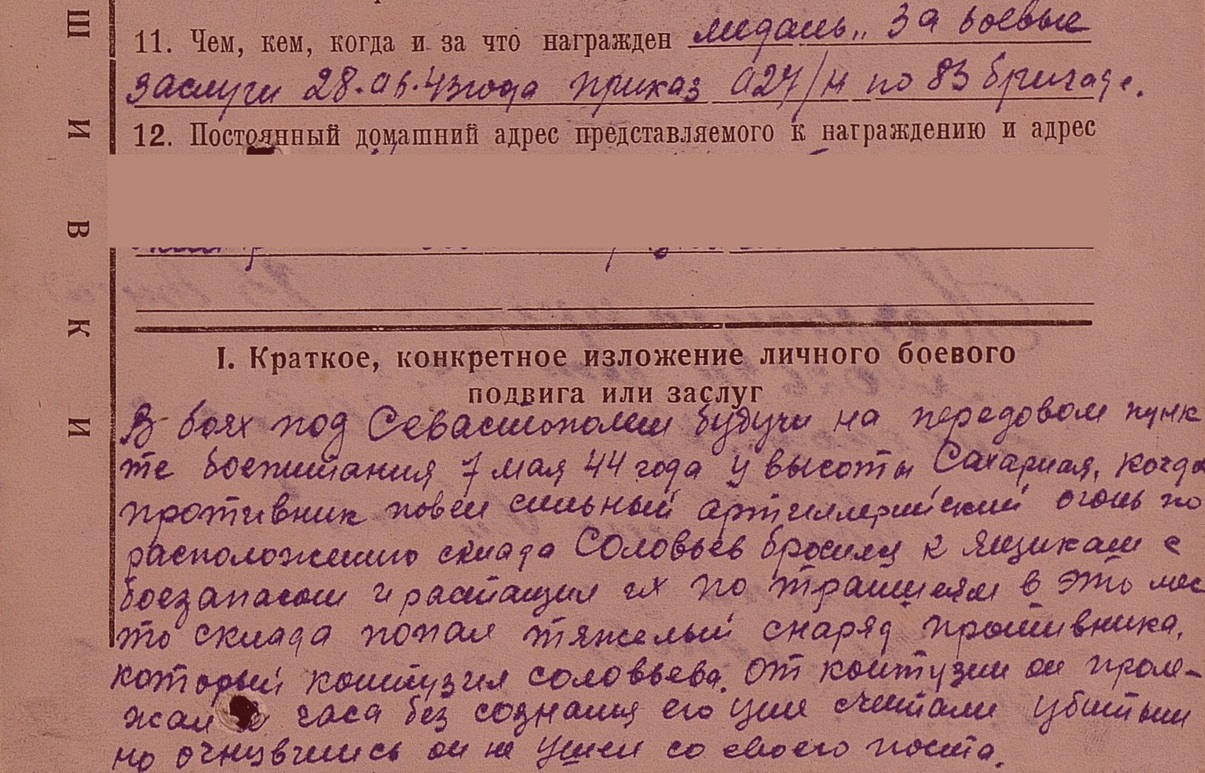 11. Чем, кем, когда и за что награжден медаль „За боевые
заслуги 28.ав.43года приказ №27/н по 83 бригаде.
12. Постоянный домашний адрес представляемого к награждению и адрес
I. Краткое, конкретное изложение личного боевого
подвига или заслуг
В боях под Севастополем будучи на передовом пунк
те боепитания 7 мая 44 года у высоты Сахарная, когда
противник повел сильный артиллерийский огонь по
расположению склада Соловьев бросился к ящикам с
боезапасом и растащил их по траншеям в это мес
то склада попал тяжелый снаряд противника,
который контузил Соловьева. От контузии он проле-
жал часа без сознания его уже считали убитым
но очнувшись он не ушел со своего поста.
ШИВКИ